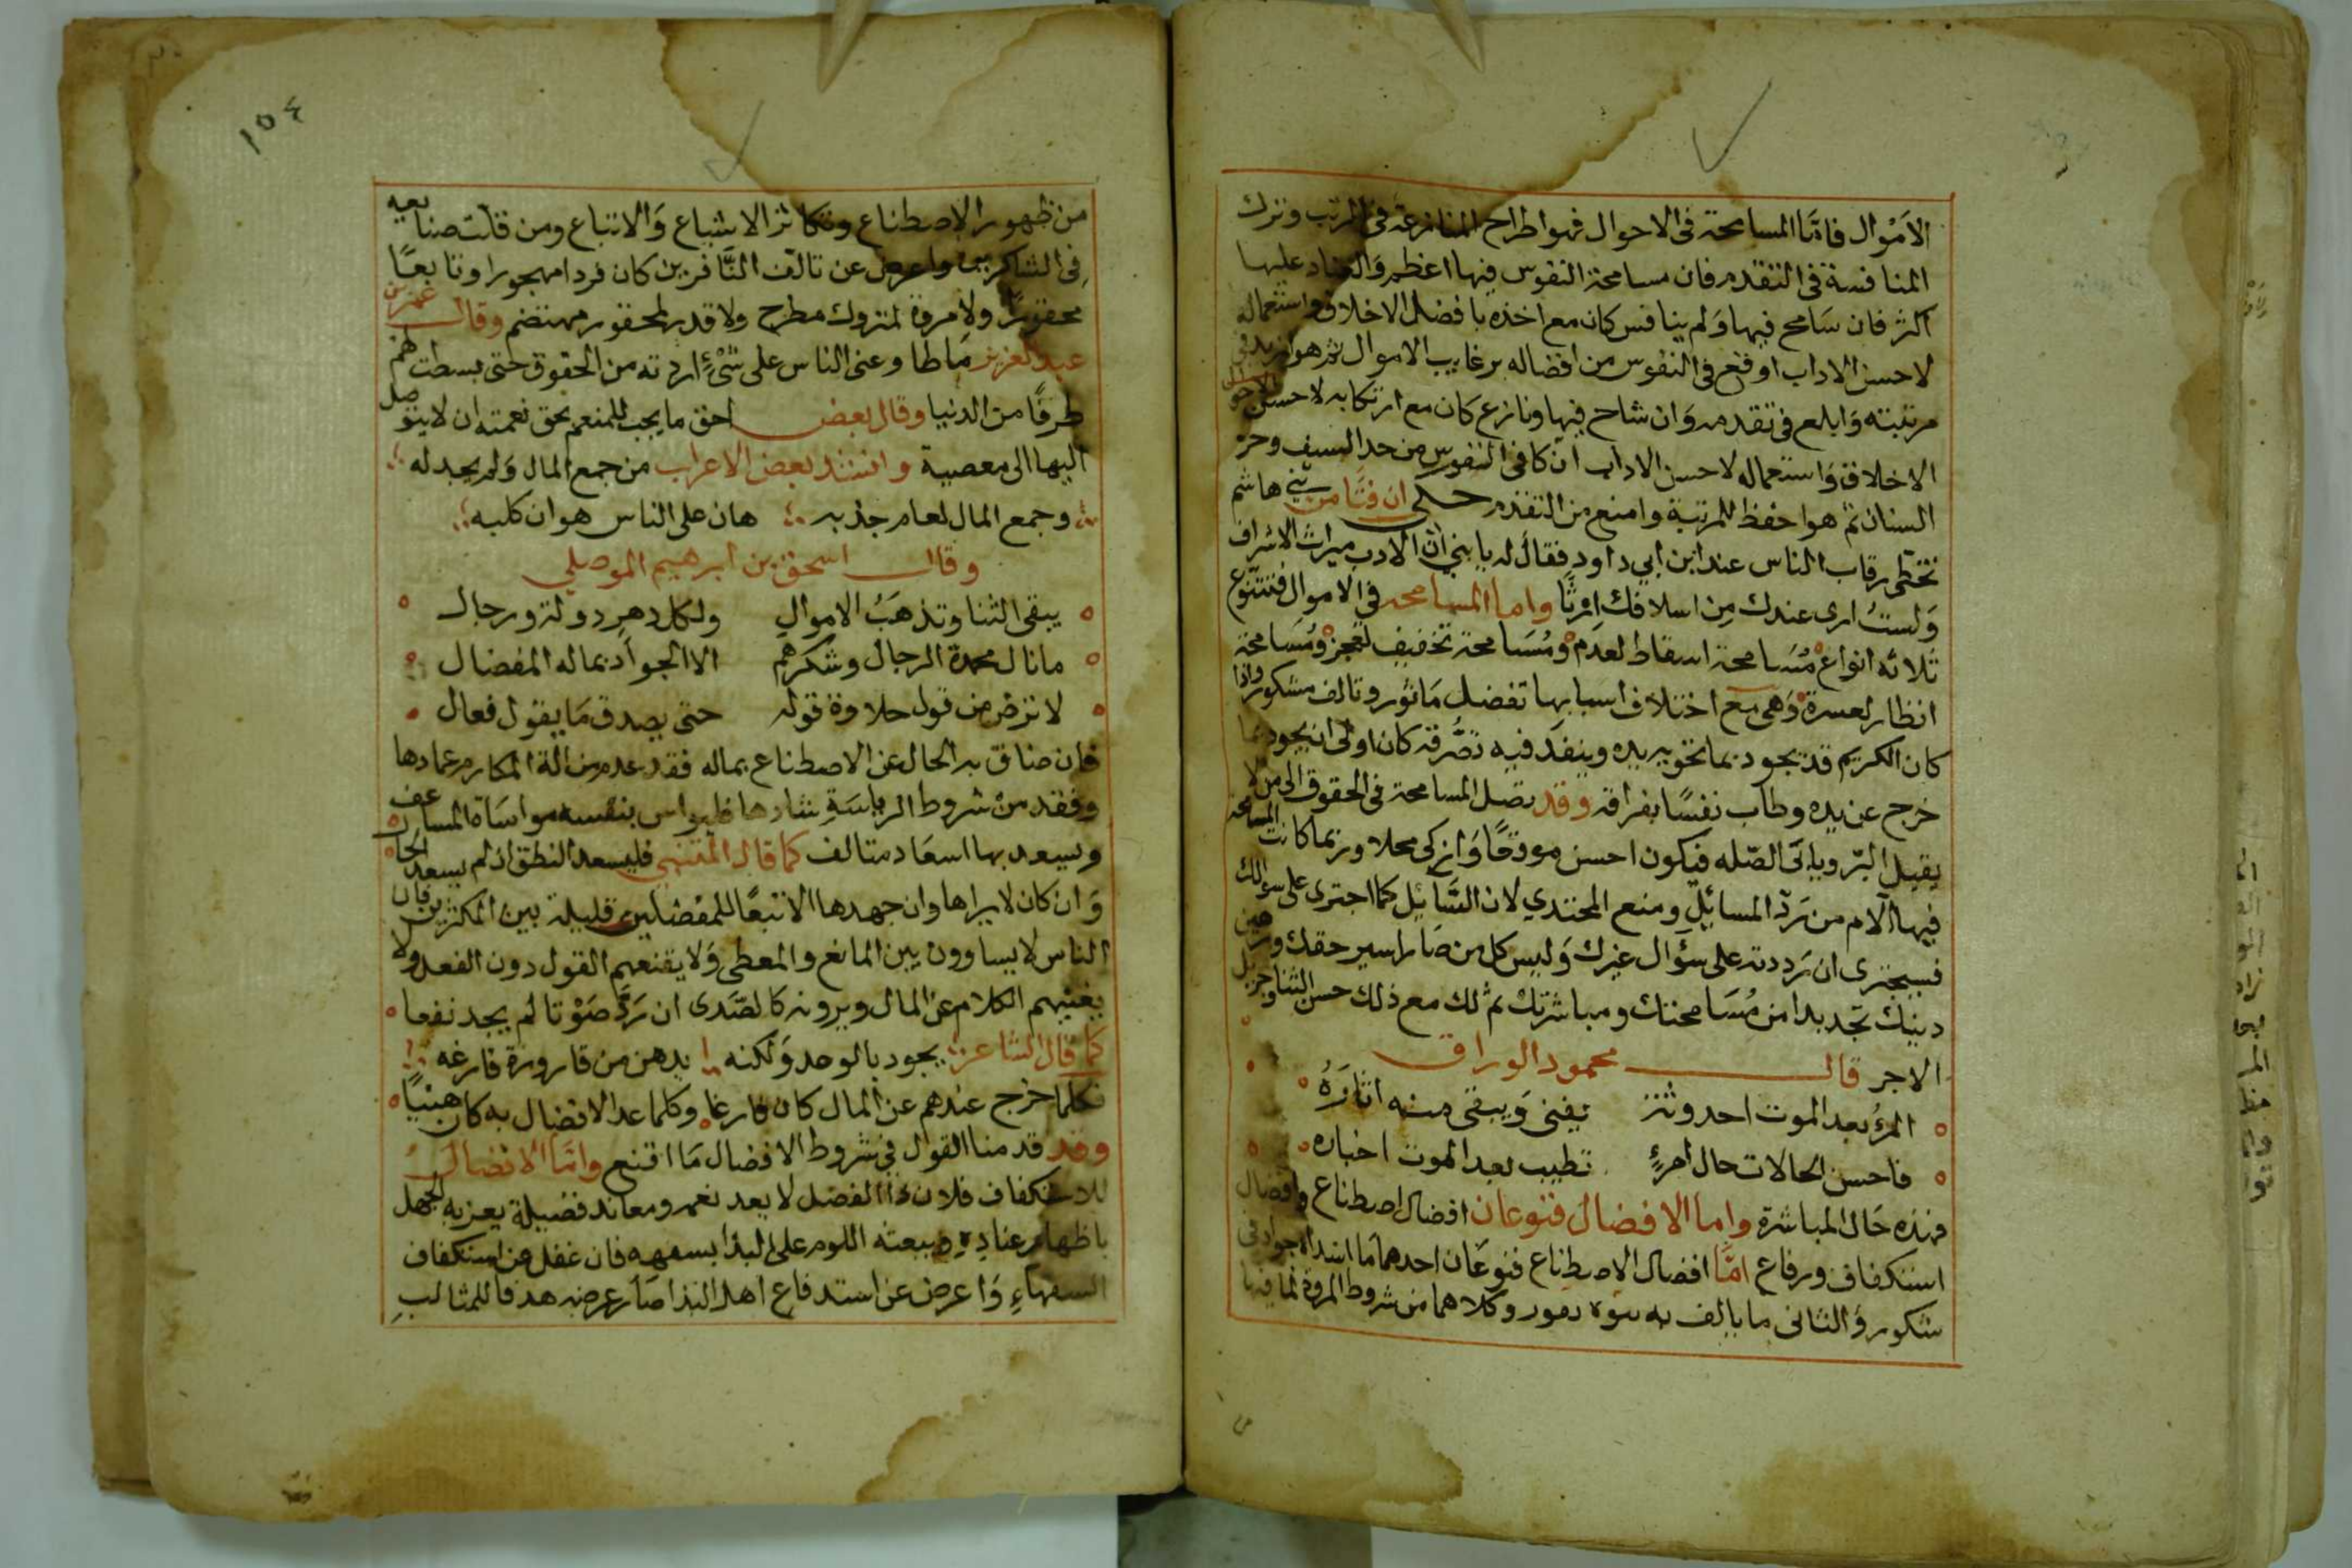 الاَمْوال فامّا المسامحة فى الاحوال فهو اطراح المنازعة فى الرتب وترك
المنافسة فى التقدم فان مسامحة النفوس فيها اعظم والعناد عليها
اكثر فان سَامح فيها وَلم ينافس كان مع اخذه بافضل الاخلاق واستعماله
لاحسن الاداب اوقع فى النفوس من افضاله برغايب الاموال ثم هو ازيد فى
مرتبته وَابلغ فى تقدمه وَان شاح فيها ونازع كان مع ارتكابه لاخسن
الاخلاق وَاستعماله لاحسن الاداب انكا فى النفوس من حد السيف وحز
السنان ثم هو احفظ للمرتبة وامنع من التقدم حـكى ان فتًا من بني هاشم
تخطى رقاب الناس عند ابن ابي داود فقال له يا بني ان الادب ميراث الاشراف
وَلستُ ارى عندك مِن اسلافك اِرثًا واما المسامحه فى الاموال فتتنوع
ثلاثه انواع مُسَامحة اسقاط لعدم ومُسَامحة تخفيف لعجز ومُسَامحة
انظار لعسرة وَهى مع اختلاف اسبابها تفضل مَاثور وتالف مشكور واذا
كان الكريم قد يجود بما تحويه يده وينفذ فيه تصُّرفه كان اولى ان يجود بما
خرج عن يده وطاب نفسًا بفراقه وقد تصل المسامحة فى الحقوق الى من لا
يقبل البّر ويابَى الصّله فيكون احسن موقعًا وَازكى محلا وربما كانت المسامحة
فيها آلام من رَدّ المسائِلِ ومنع المجتدي لان السَّائِل كما اجترى على سؤالك
فسيجترى ان رَددته على سؤال غيرك وَليس كل من صَار اسير حقك ورهين
دينك تجد بدا من مُسَامحتك ومباشرتك ثم لك مع ذلك حسن الثنا وجزيل
الاجر قالــــ محمود الوراق
المرُ بعد الموت احدوثة يفنى وَيبقى منه اثارُهُ
فاحسن الحالات حال امرئٍ تطيب بعد الموت اخباره
فهذه حَال المباشرة واما الافضال فنوعان افضال اصطناع وافضال
استكفاف ودفاع امَّا افضال الاصطناع فنوعَان احدهما مَا ابتداه جواد فى
شكور وَالثانى ما بالف به نبوه نفور وكلاهما من شروط المروة لما فيها
١٥٤
من ظهور الاصطناع وتكاثر الاشياع وَالاتباع ومن قلت صنايعه
فى الشاكرين واعرض عن تالف النَّافرين كان فردا مهجورا وتابعًا
محقورًا ولا مروة لمتروك مطرح ولا قدر لمحقور مهتضم وقال عمر بن
عبد العزيز مَا طاوعنى الناس على شَئٍ اردته من الحقوق حتى بسطت لهم
طرفًا من الدنيا وقال بعض احق ما يجب للمنعم بحق نعمته ان لا يتوصل
اليها الى معصية وانشد بعض الاعراب من جمع المال ولم يجد له
وجمع المال لعام جذبه هان على الناس هوان كلبه
وقالـــ اسحق بن ابرهيم الموصلي
يبقى الثنا وتذهَبُ الاموال ولكل دهر دولة ورجال
ما نال محمدة الرجال وشكرهم الا الجواد بماله المفضال
لا ترض من قول حلاوة قوله حتى يصدق مَا يقول فعال
فان ضاق به الحال عن الاصطناع بماله فقد عدم من الة المكارم عمادها
وفقد من شروط الرياسَةِ شادها فليواس بنفسه مواسَاة المساعف
وليسعد بها اسعَاد متالف كما قال المتنبي فليسعد النطق ان لم يسعد الحا
وَان كان لا يراها وان جهدها الا تبعًا للمفضلين قليلة بين المكثرين فان
الناس لا يساوون بين المانع والمعطى وَلا يقنعهم القول دون الفعل ولا
يغنيهم الكلام عن المال ويرونه كالصّدى ان رَدَّ صَوْتا لم يجد نفعا
كما قال الشاعر يجود بالوعد وَلكنه يدهن من قارورة فارغه
فكلما خرج عندهم عن المال كان فارغا وكلما عدا الافضال به كان هنيًا
وقد قدمنا القول فى شروط الافضال مَا اقنع وامَّا الافضال
للاستكفاف فلان ذا الفضل لا يعد نعم ومعاند فضيلة يعزبه الجهل
باظهار عنادِه ويبعثه اللوم على البذا بسفهه فان غفل عن استكفاف
السفهاءِ وَاعرض عن استدفاع اهل البذا صَار عرضه هدفا للمثالبِ